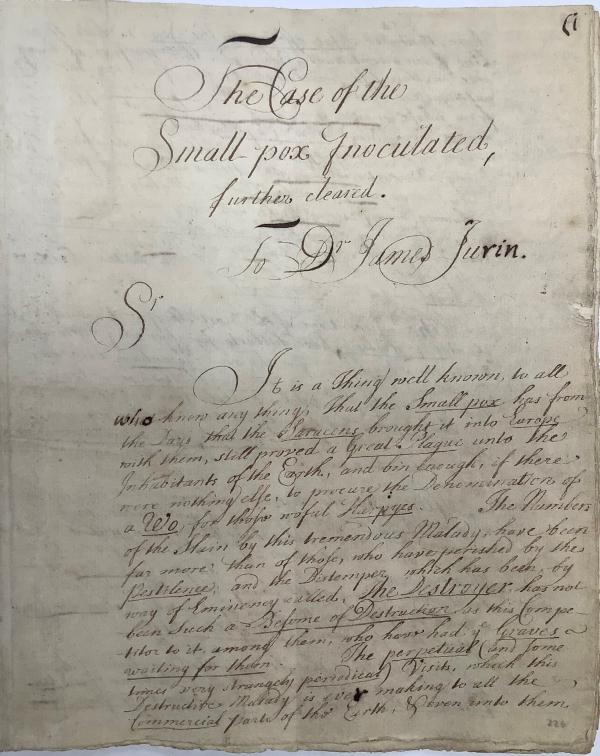 (1
The Case of the
Small-pox Inoculated,
further cleared.
To Dr James Jurin.
Sr
It is a Thing well known, to all
who know any thing, That the Small pox has from
the Days that the Saracens brought it into Europe
with them, still proved a Great Plague unto the
Inhabitants of the Earth, and bin enough, if there
were nothing else, to procure the Denomination of
a Wo, for those woful Harpyes. The Numbers
of the Slain by this tremendous Malady, have been
far more than of those, who have perished by the
Pestilence; and the Distemper which has been, by
way of Eminency called, The Destroyer, has not
been such a Besome of Destruction, as this Compe-
titor to it, among them, who have had ye Graves
waiting for them. The perpetual (and some
times very strangely periodical) Visits, which this
Destructive Malady is ever making to all the
Commercial parts of the Earth, & even unto them
226